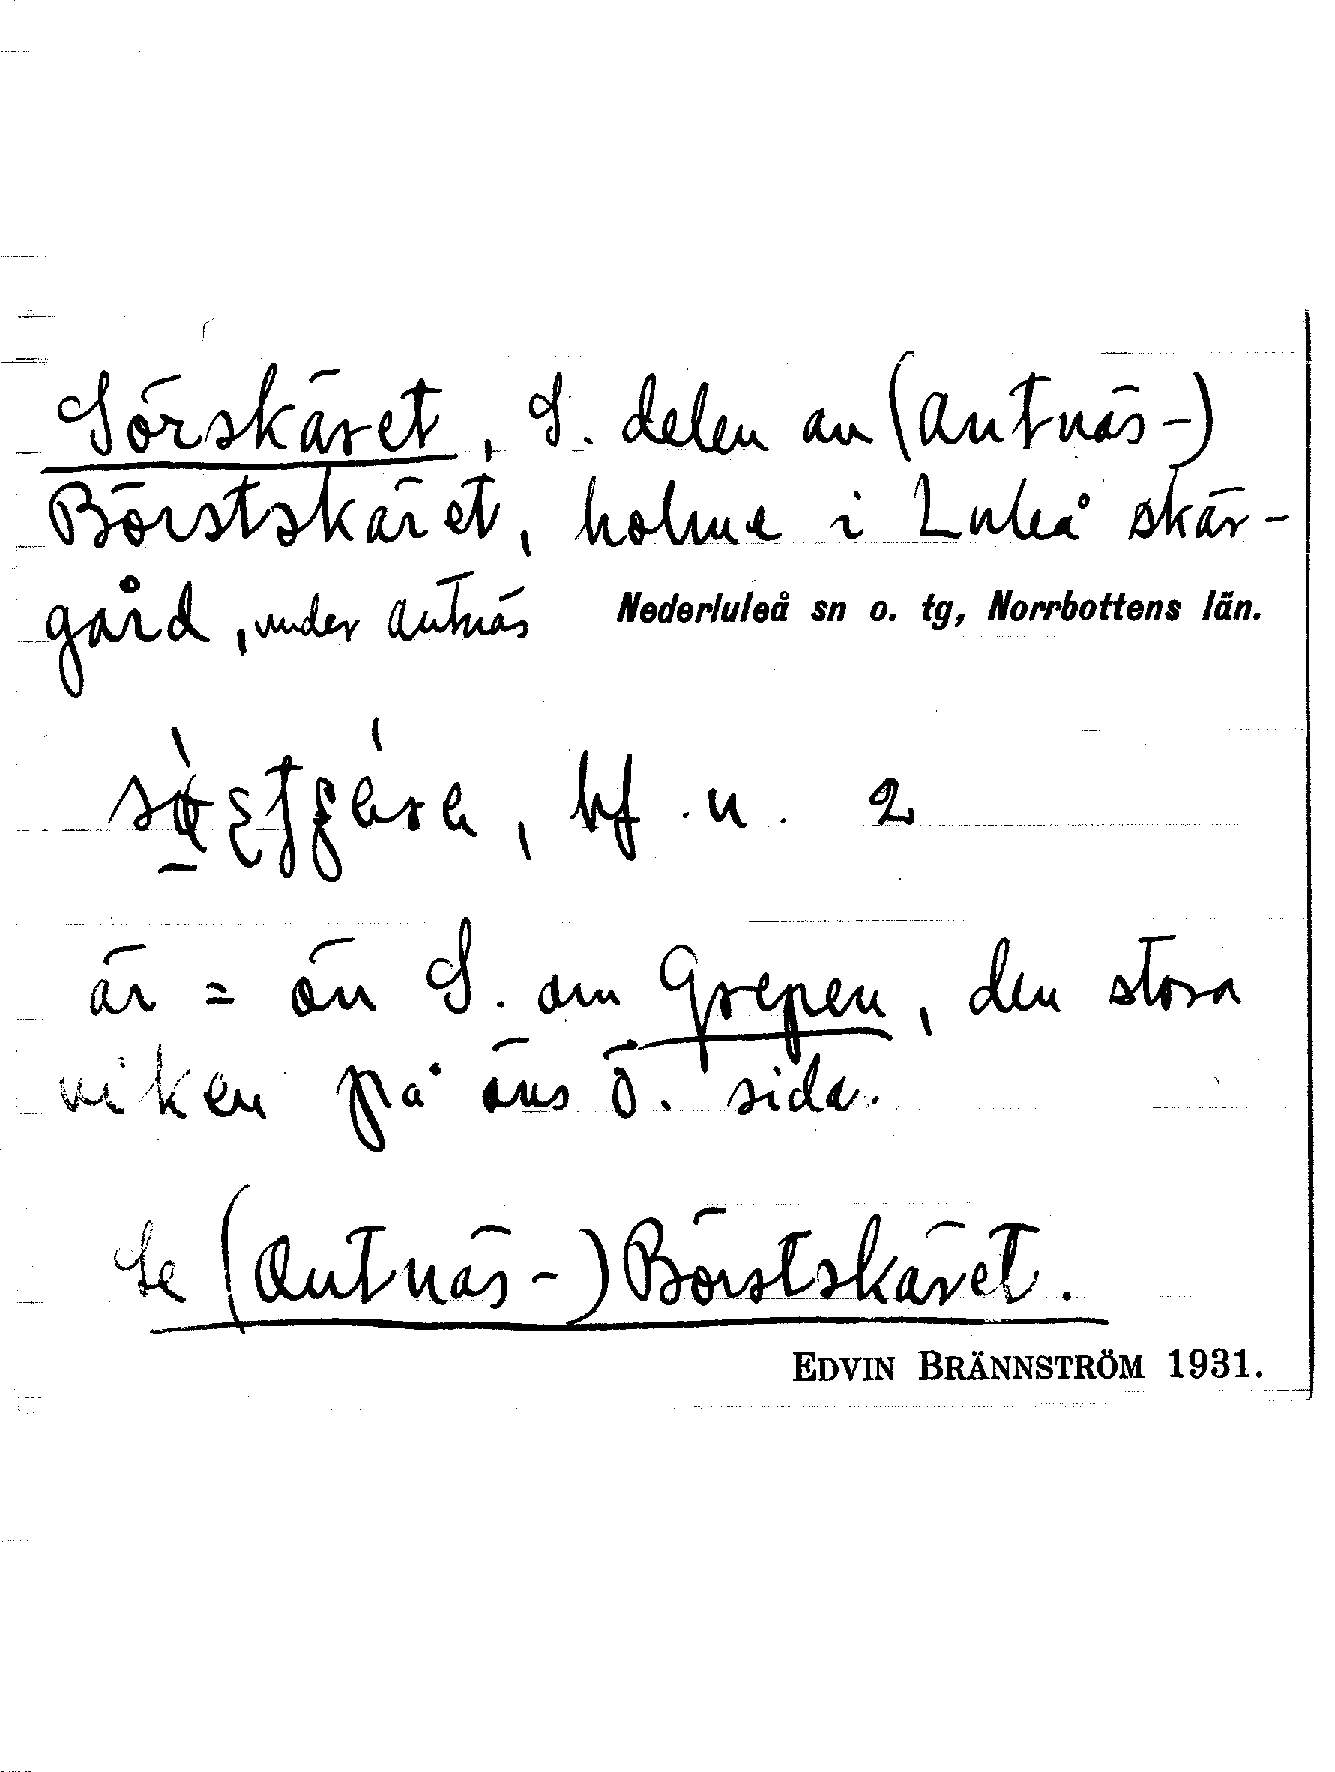 Sörskäret, S. delen av (Antnäs-)
Börstskäret, holme i Luleå skär-
gård, under Antnäs Nederluleå sn o. tg, Norrbottens län.
, bf. n. 2
är = ön S. om Grepen, den stora
viken på öns Ö. sida.
Se (Antnäs-)Börstskäret.
EDVIN BRÄNNSTRÖM 1931.